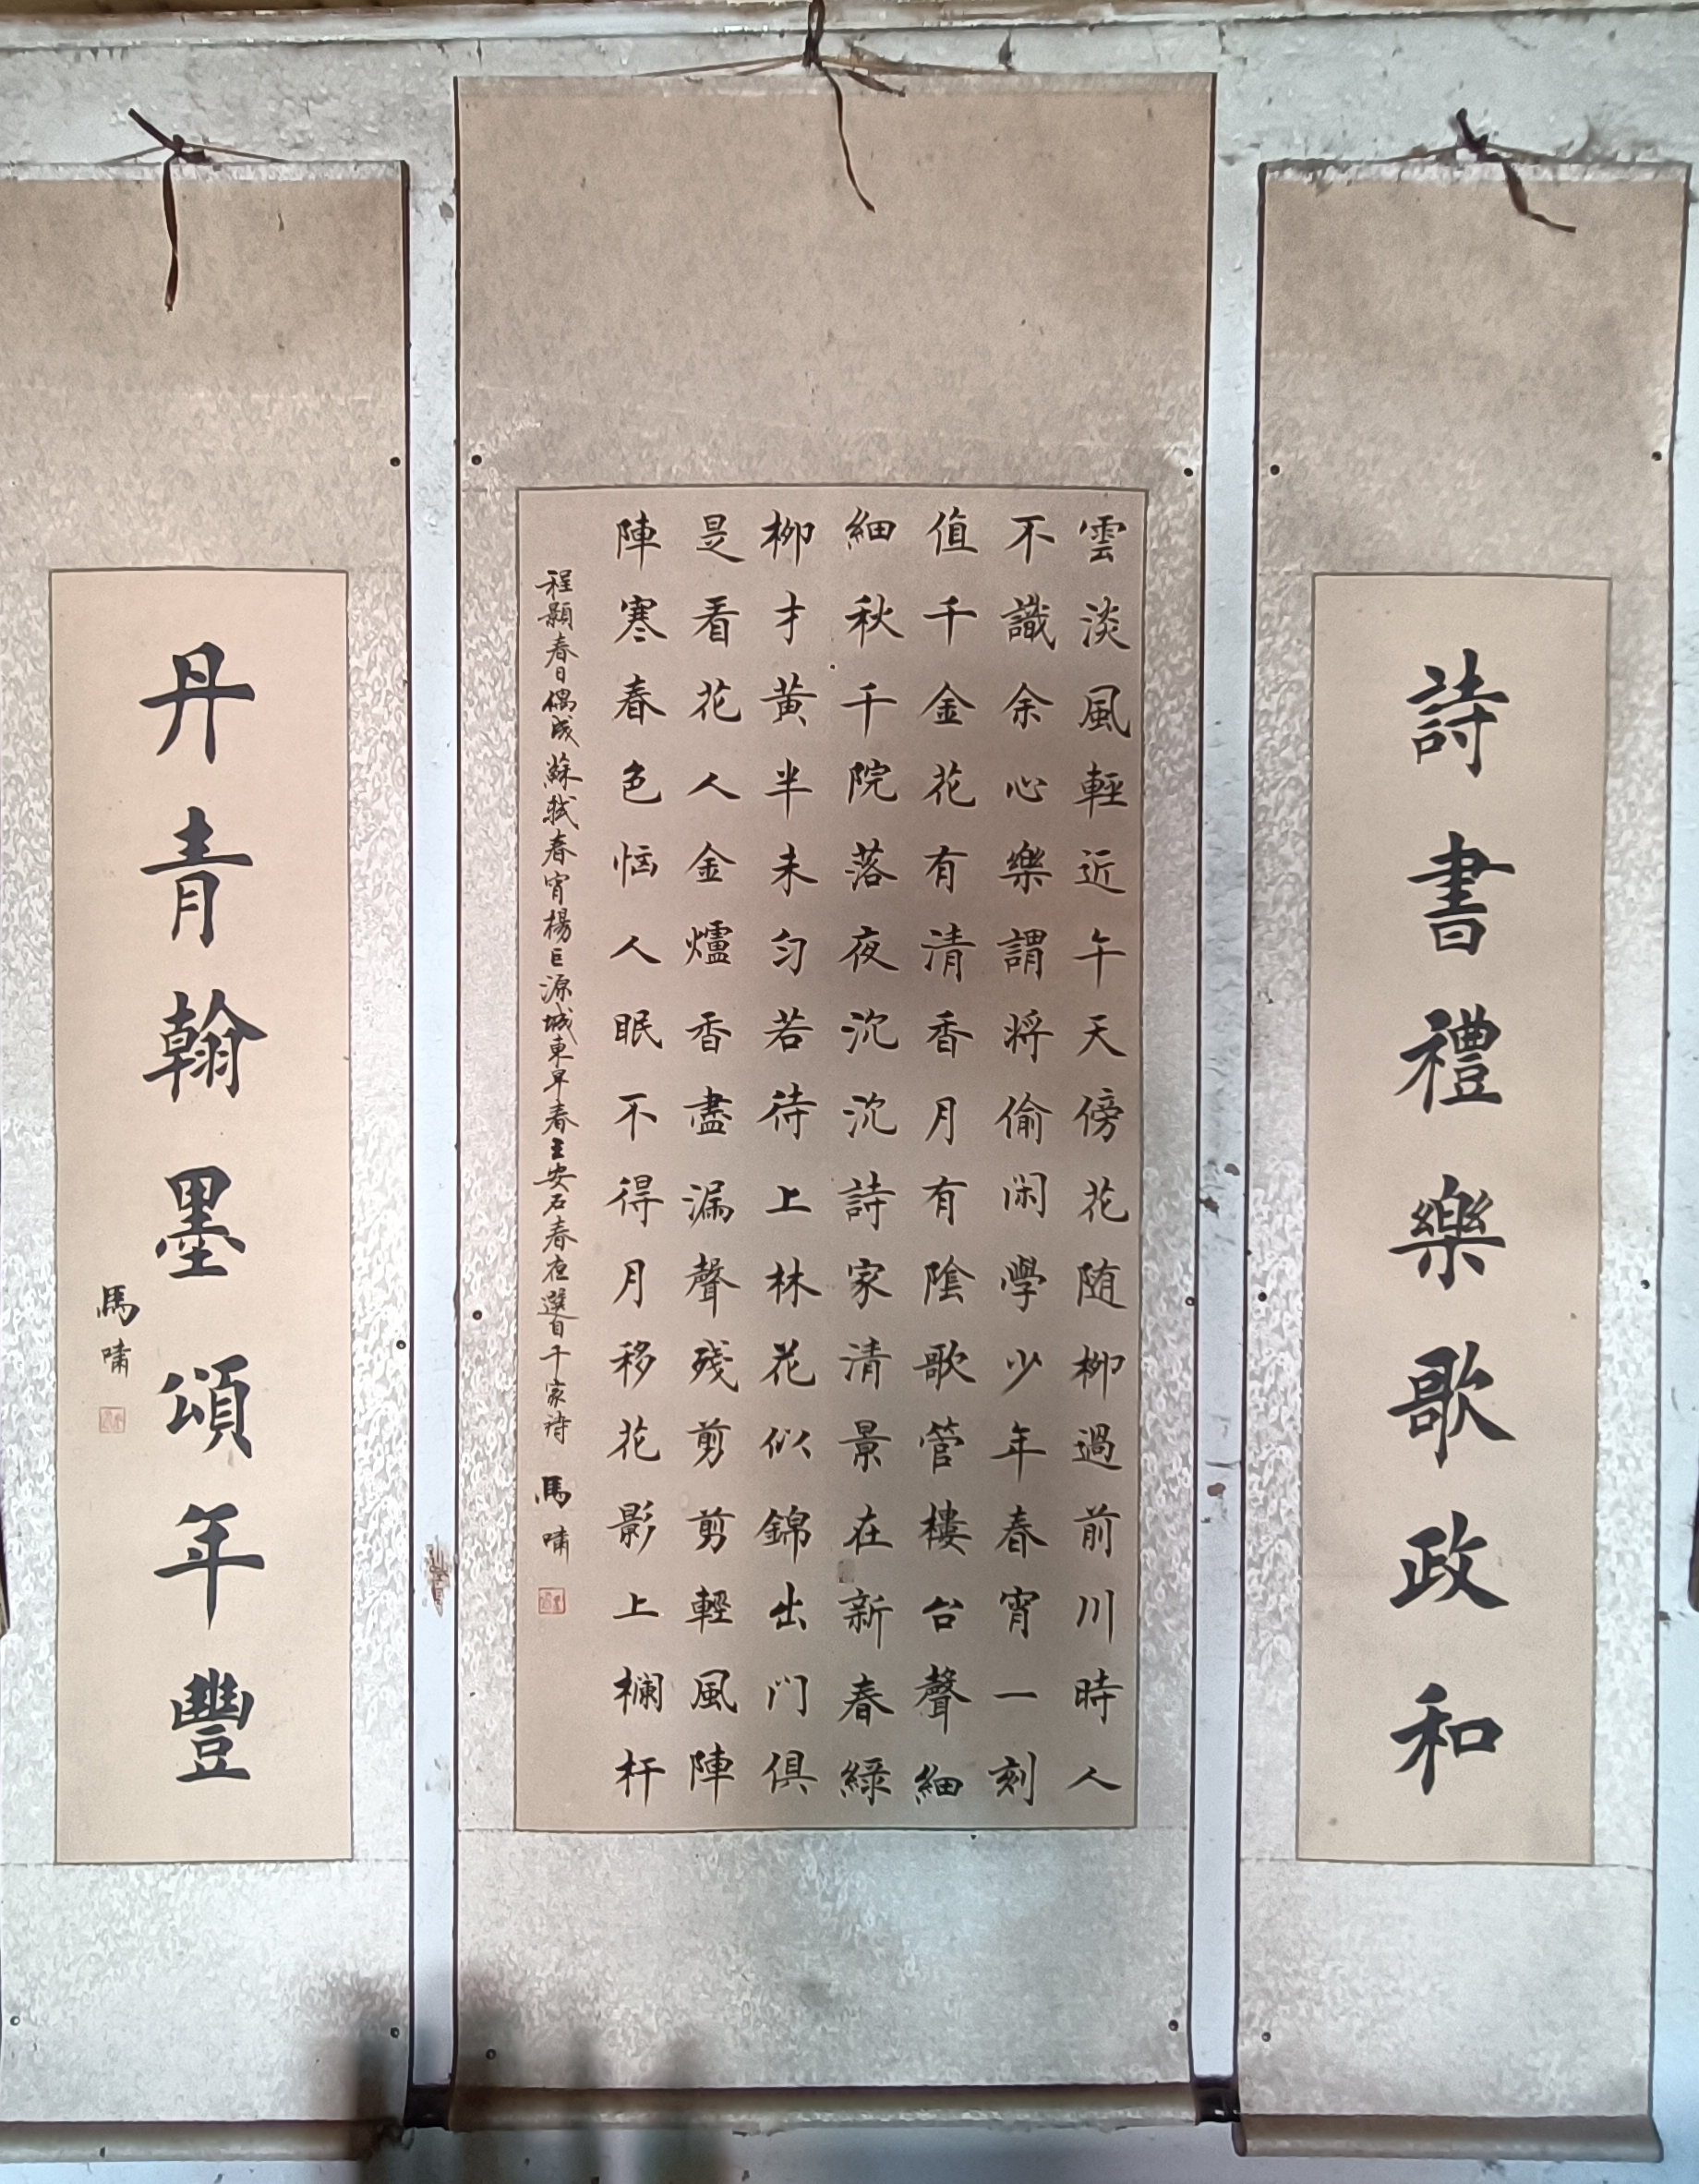 詩書禮樂歌政和
雲淡風輕近午天傍花随柳過前川時人
不識余心樂謂将偷闲學少年春宵一刻
值千金花有清香月有陰歌管樓台聲細
細秋千院落夜沉沉詩家清景在新春綠
柳才黄半未匀若待上林花似錦出门俱
是看花人金爐香盡漏聲殘剪剪輕風陣
陣寒春色恼人眠不得月移花影上欄杆
程顥春日偶成蘇軾春宵楊巨源城東早春王安石春夜選自千家詩 馬嘯
丹青翰墨頌年豐
馬嘯